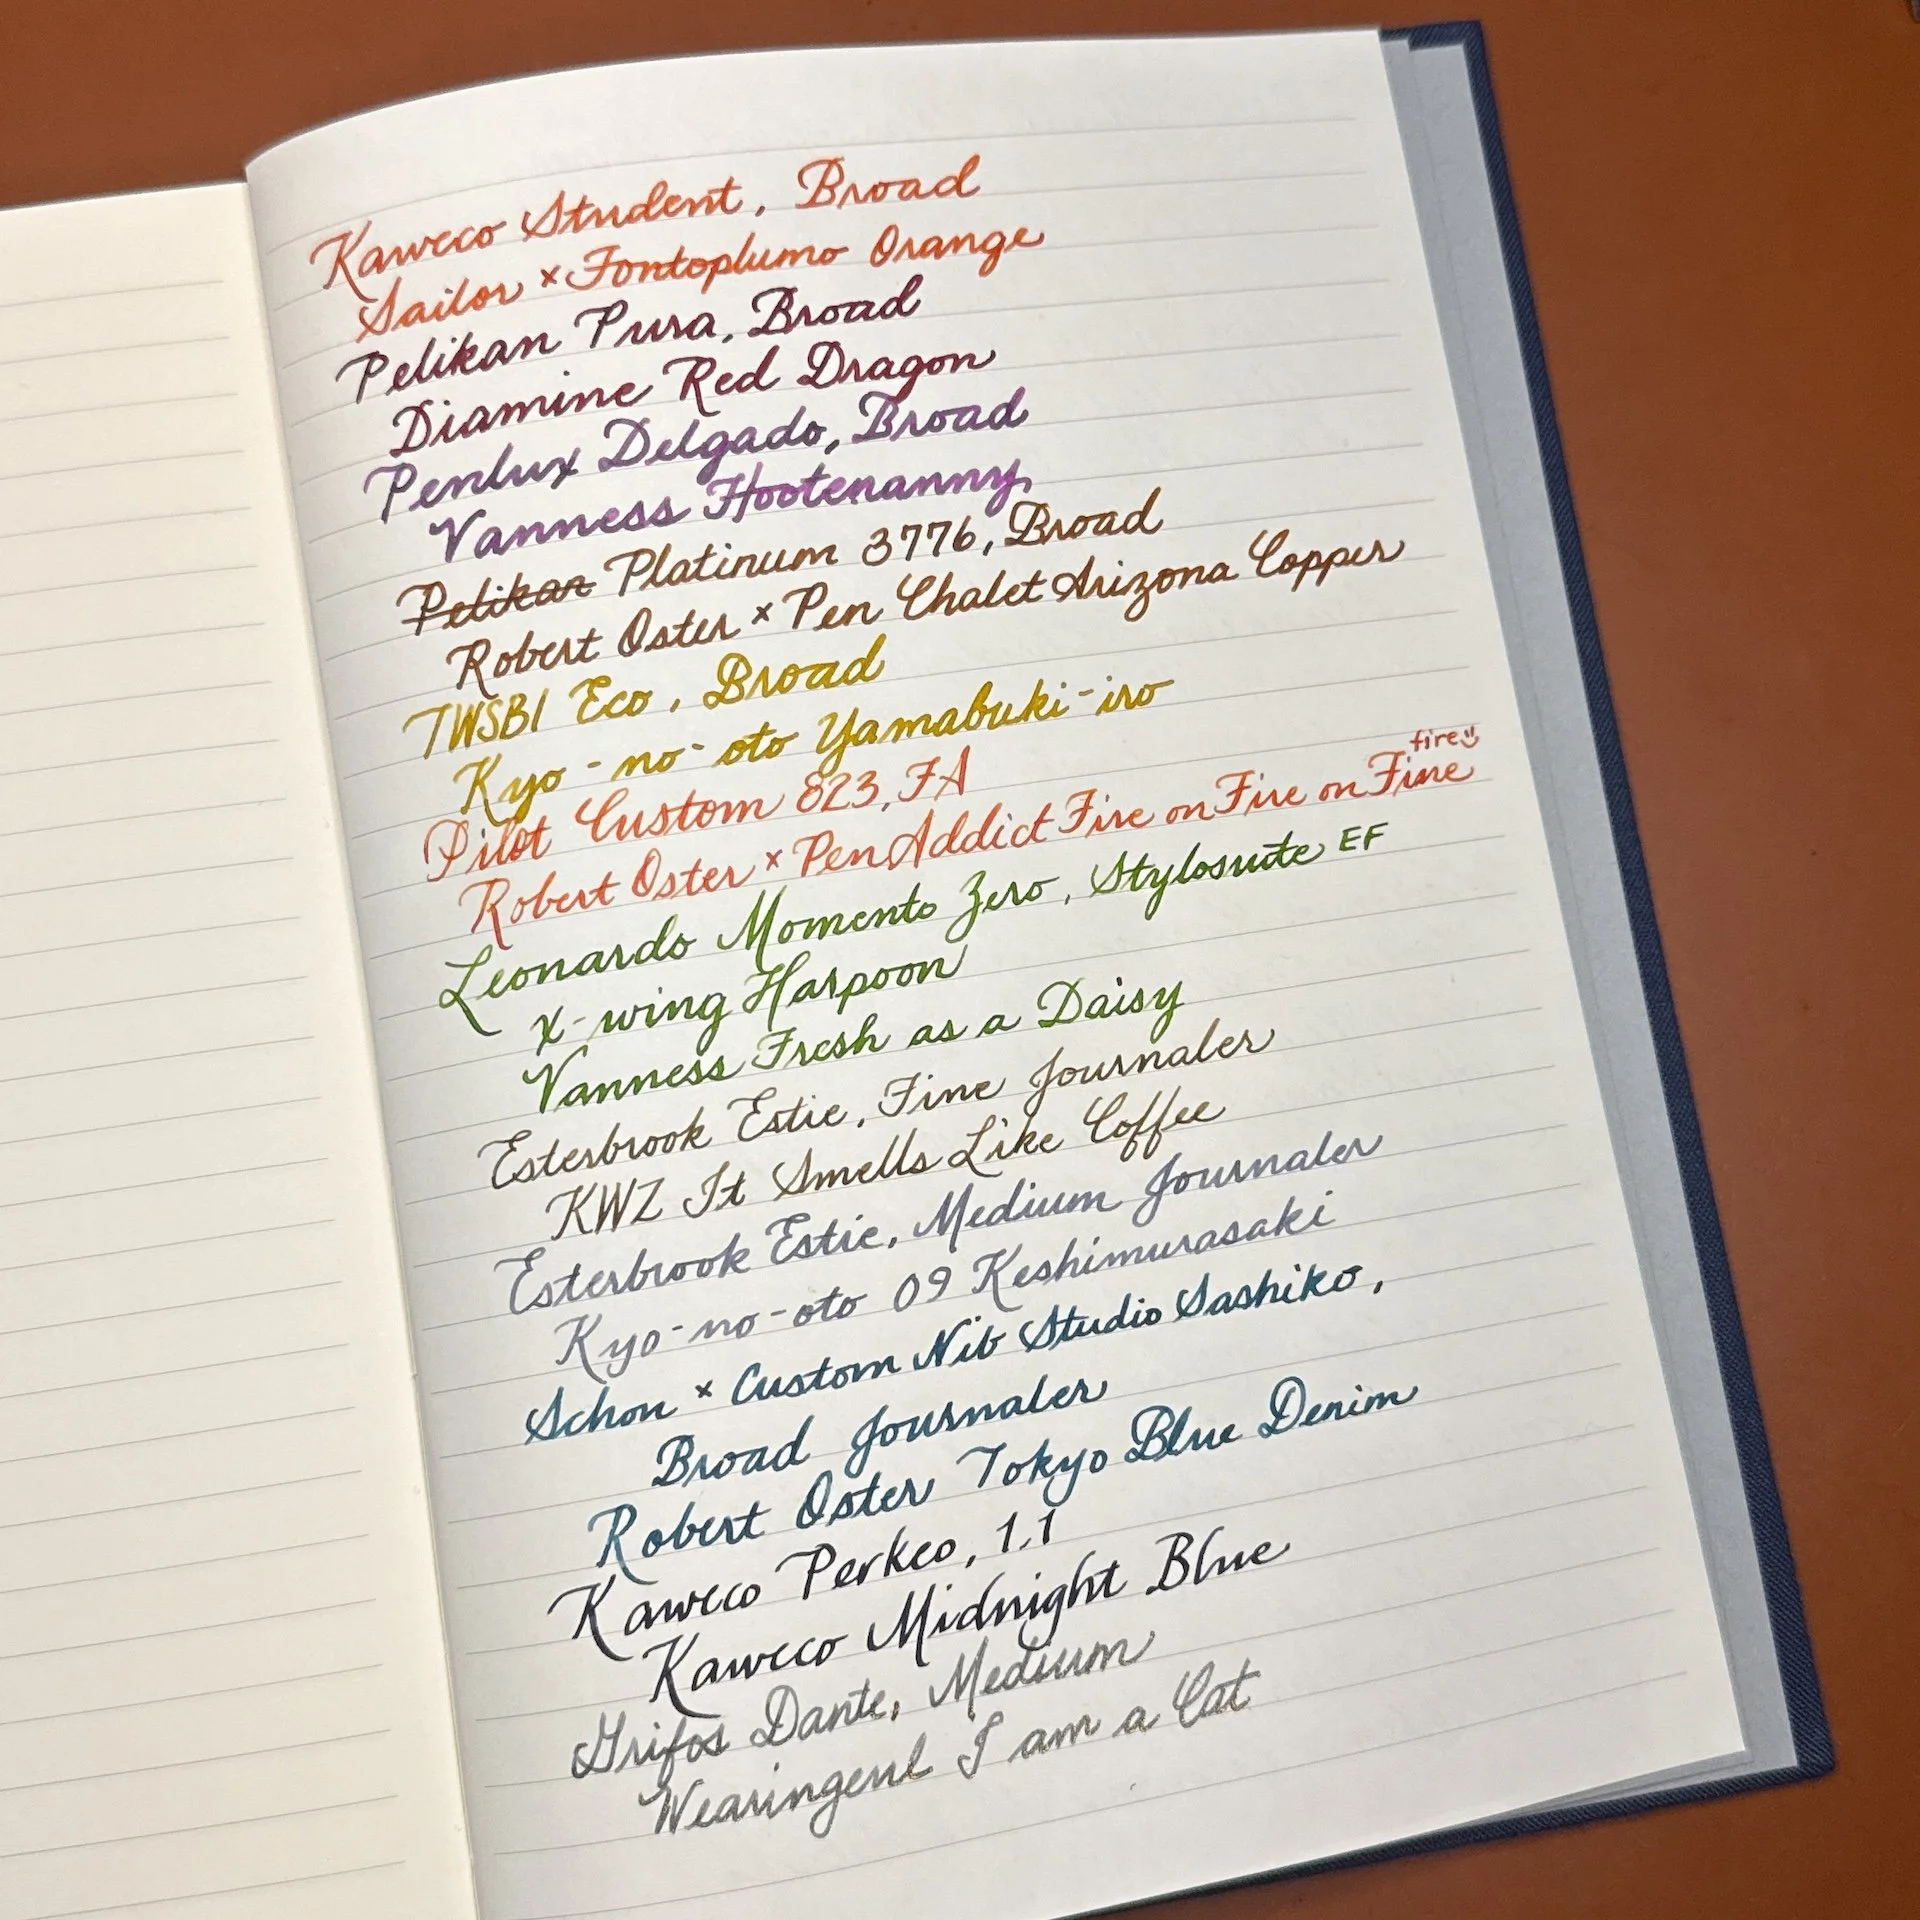 Kaweco Student, Broad
Sailor × Fontoplumo Orange
Pelikan Pura, Broad
Diamine Red Dragon
Penlux Delgado, Broad
Vanness Hootenanny
Pelikan Platinum 3776, Broad
Robert Oster × Pen Chalet Arizona Copper
TWSBI Eco, Broad
Kyo-no-oto Yamabuki-iro
Pilot Custom 823, FA
fire
Robert Oster × Pen Addict Fire on Fire on Fine
Leonardo Momento Zero, Stylosuite EF
X-wing Harpoon
Vanness Fresh as a Daisy
Esterbrook Estie, Fine Journaler
KWZ It Smells Like Coffee
Esterbrook Estie, Medium Journaler
Kyo-no-oto 09 Keshimurasaki
Schon × Custom Nib Studio Sashiko,
Broad Journaler
Robert Oster Tokyo Blue Denim
Kaweco Perkeo, 1.1
Kaweco Midnight Blue
Grifos Dante, Medium
Wearingeul I am a Cat